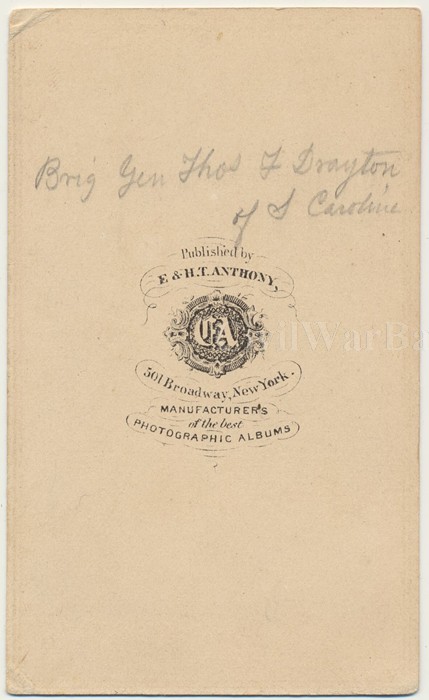 Brig Gen Thos F Drayton
of S Caroline
Published by
E & H.T. ANTHONY,
CA
501 Broadway, New York.
MANUFACTURERS
of the best
PHOTOGRAPHIC ALBUMS